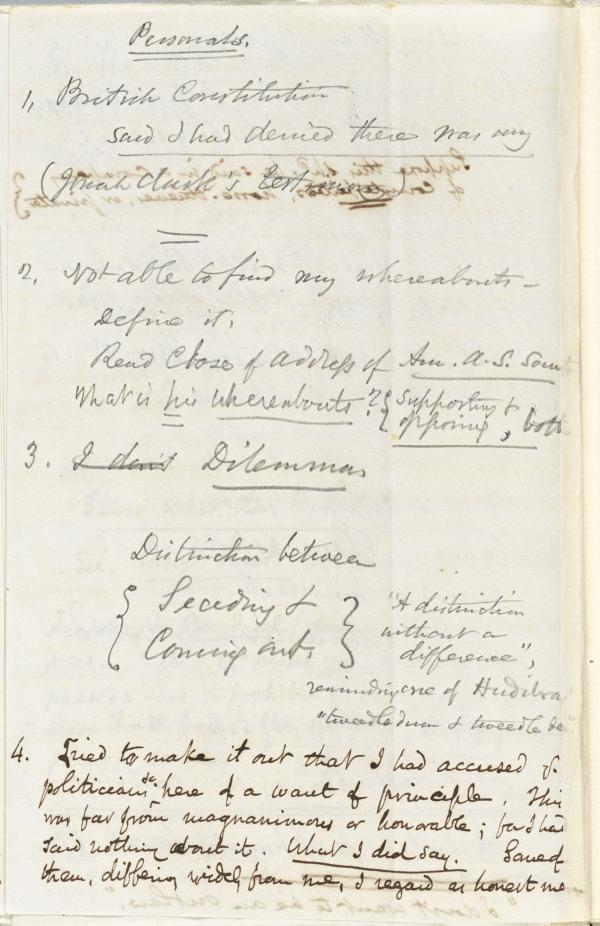 Personals.
1, British Constitution
said I had denied there was any
(Jonah Clark's testimony)
2, Not able to find my whereabouts –
Define it.
Read Close of Address of Am. A. S. Soc
What is his whereabouts? { supporting &
opposing, both
3. I don't Dilemmas
Distinction between
{ Seceding &
Coming out. }
"A distinction
without a
difference",
reminding one of Hudibras
"tweedle dum & tweedle de"
4. Tried to make it out that I had accused &c.
politicians here of a want of principle. This
was far from magnanimous or honorable; for I had
said nothing about it. What I did say. Some of
them, differing widely from me, I regard as honest me